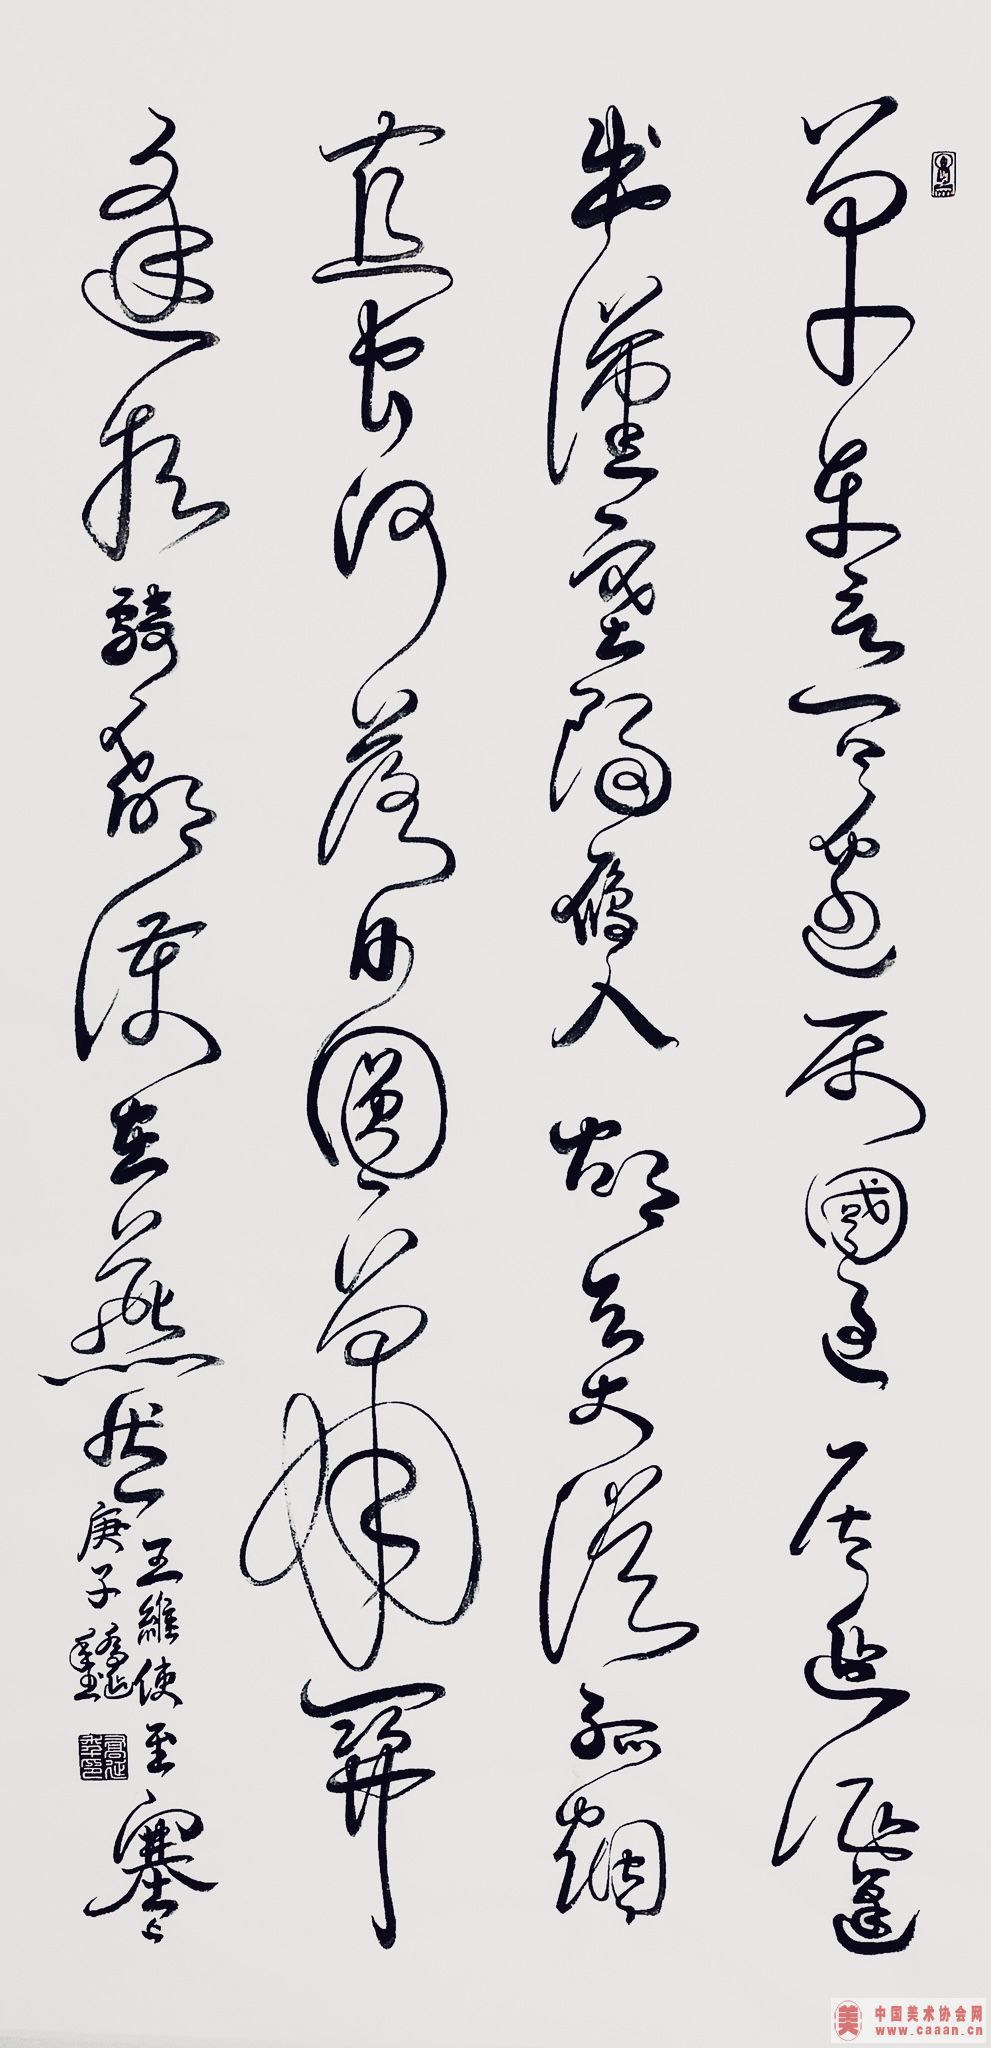 單車欲問邊属國過居延征蓬
出漢塞歸雁入胡天大漠孤烟
直長河落日圓蕭關
逢候騎都護在燕然
王維使至塞上
庚子
中国美术协会网
www.caaan.cn